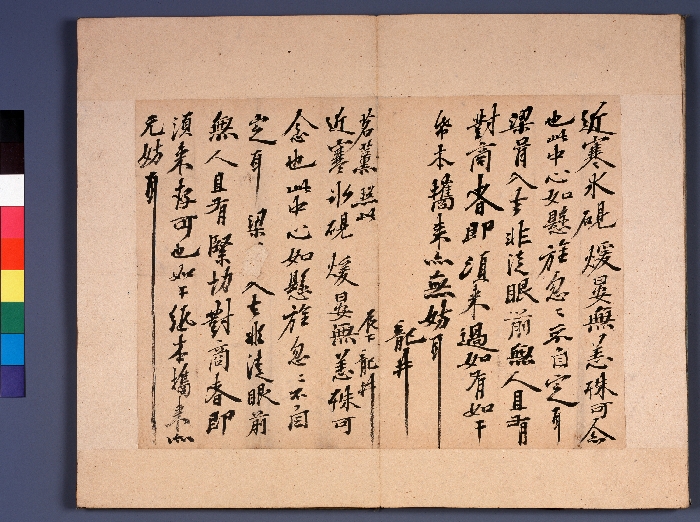 近寒氷硯煖晏無恙殊可念
也此中心如懸旌忽〻不自定耳
梁 入去非徒眼前無人且有
對商者即須来過如有如干
紙本携来亦無妨耳
龍井
茗薰照以
辰下龍井
近寒氷硯煖晏無恙殊可
念也此中心如懸旌忽〻不自
定耳 梁 入去非徒眼前
無人且有緊切對商者即
須来存可也如干紙本携来亦
无妨耳